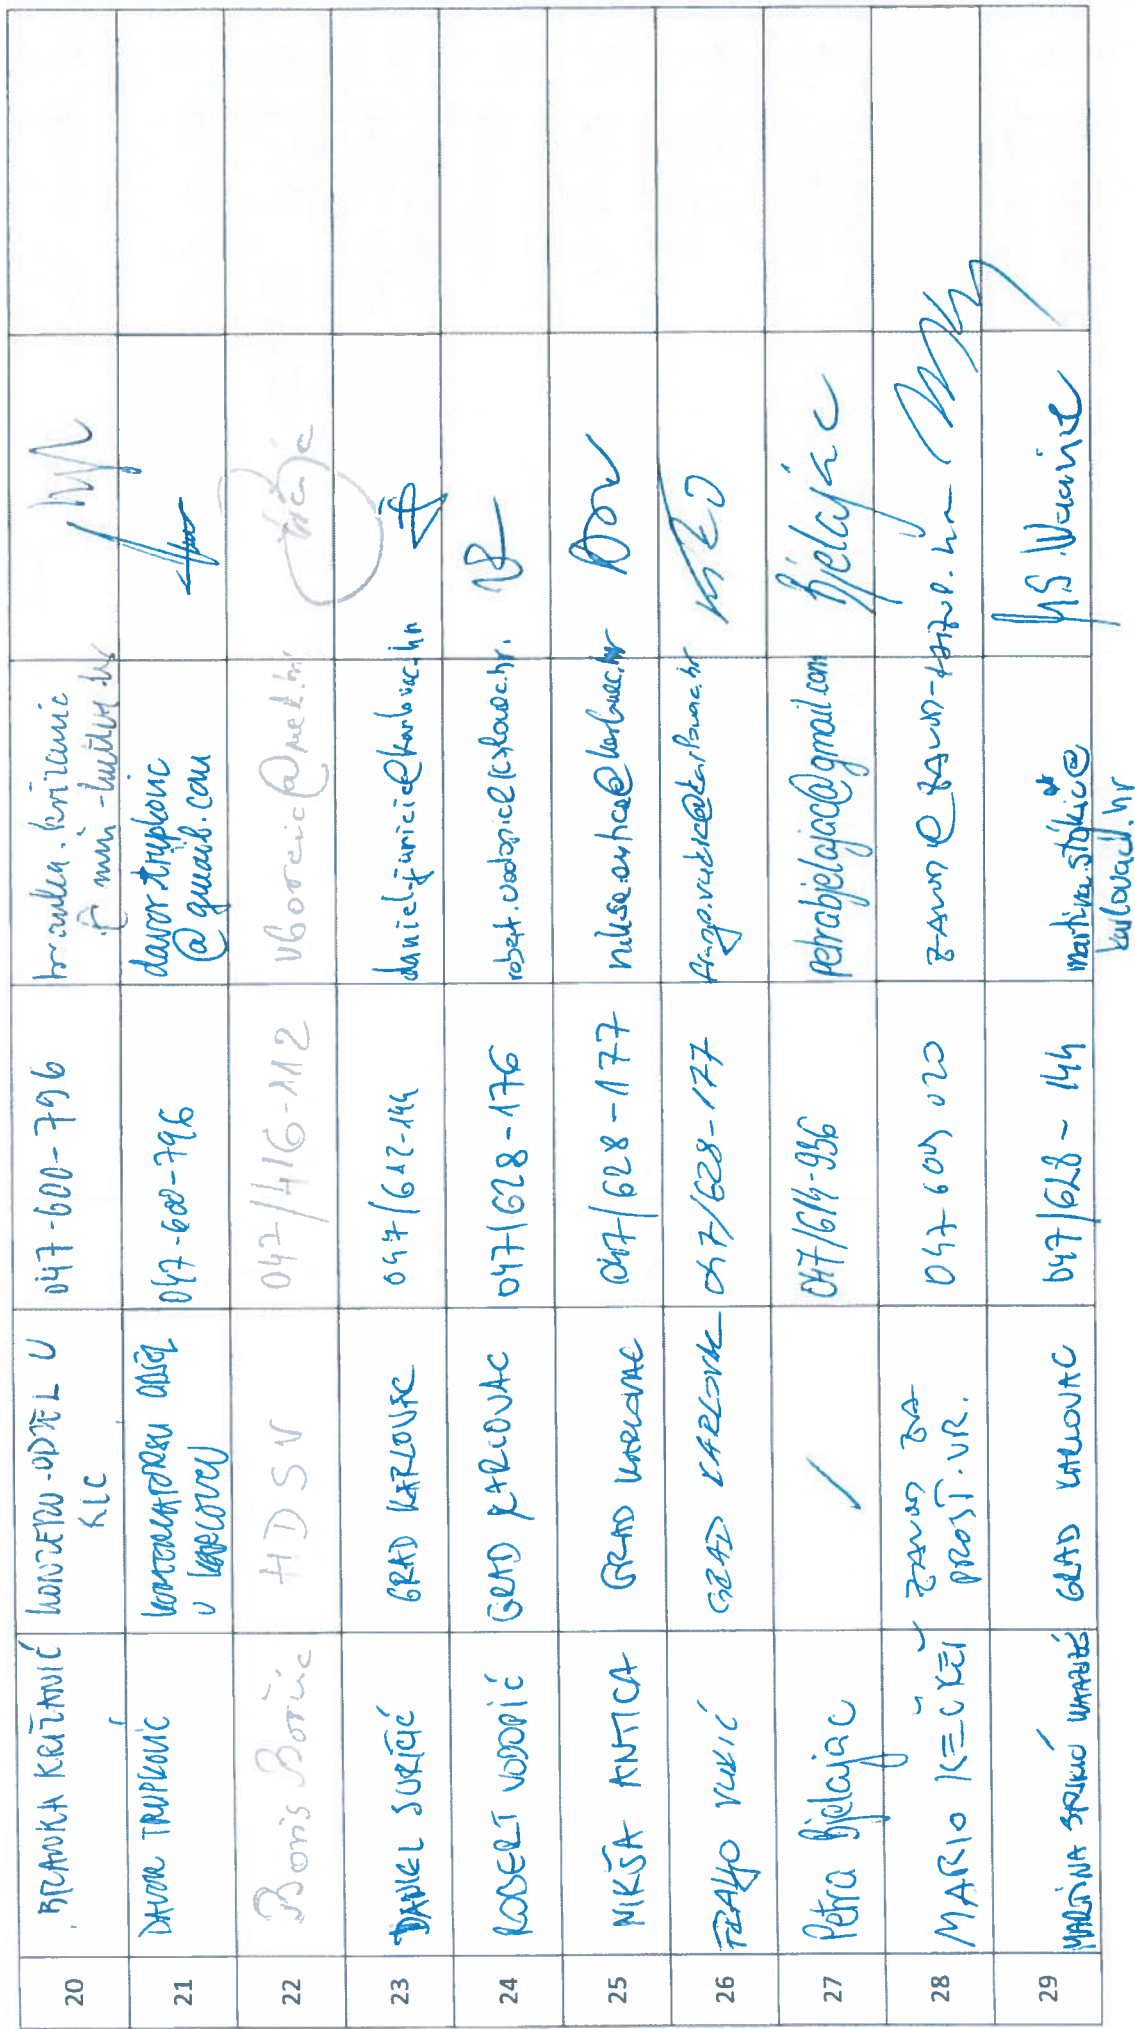 20 BRANKA KRIŽANIĆ KONZERV. ODJEL U 047-600-796 branka.krizanic
KLC @ min-kulture.hr
21 DAVOR TRUPKOVIĆ KONZERVATORSKI ODJEL 047-600-796 davor.trupkovic
U KARLOVCU @gmail.com
22 Boris Borčić HDSV 047/416-112 vborcic@net.hr
23 DANIEL JURIČIĆ GRAD KARLOVAC 047/612-144 daniel.juricic@karlovac.hr
24 ROBERT VODOPIĆ GRAD KARLOVAC 047/628-176 robert.vodopic@karlovac.hr
25 NIKŠA ANTICA GRAD KARLOVAC 047/628-177 niksa.antica@karlovac.hr
26 FRANJO VUKIĆ GRAD KARLOVAC 047/628-177 franjo.vukic@karlovac.hr
27 Petra Bjelajac / 047/614-936 petrabjelajac@gmail.com Bjelajac
28 MARIO ZAVOD ZA 047-609 020
PROST. UR.
29 MARTINA GRAD KARLOVAC 047/628-144 martina.stokic@
karlovac.hr